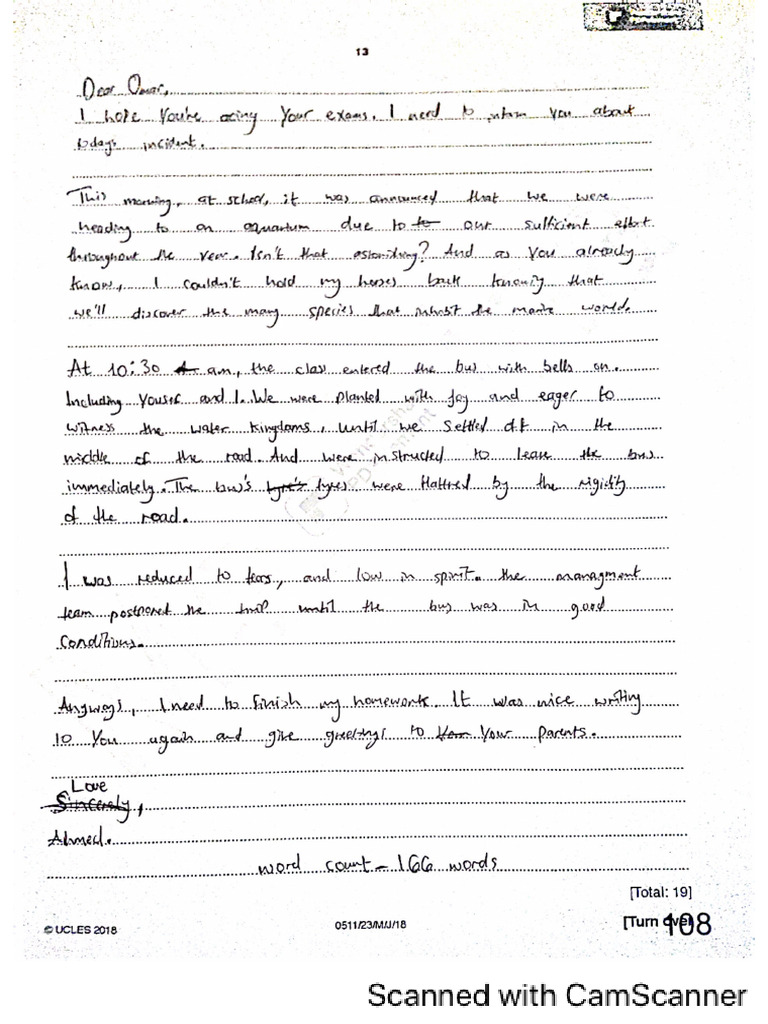 13
Dear Omar,
I hope you're acing your exams. I need to inform you about
todays incident.
This morning, at school, it was announced that we were
heading to an aquarium due to to our sufficient effort
throughout the year. Isn't that astonishing? And as you already
know, I couldn't hold my horses back knowing that
we'll discover the many species that inhibit the marine world.
At 10:30 am, the class entered the bus with bells on.
Including Yousef and I. We were planted with joy and eager to
witness the water kingdoms, until we settled off in the
middle of the road. And were instructed to leave the bus
immediately. The bus's tyre's tyres were flattred by the rigidity
of the road.
I was reduced to tears, and low in spirit. the managment
team postponed the trip until the bus was in good
conditions.
Anyways, I need to finish my homework. It was nice writing
to you again and give greetings to your parents.
Love
Sincerely,
Ahmed.
word count - 166 words
[Total: 19]
© UCLES 2018
0511/23/M/J/18
[Turn over
108
Scanned with CamScanner